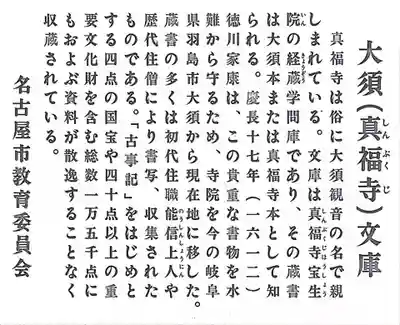 大須（真福寺）文庫
真福寺は俗に大須観音の名で親
しまれている。文庫は真福寺宝生
院の経蔵学問庫であり、その蔵書
は大須本または真福寺本として知
られる。慶長十七年（一六一二）
徳川家康は、この貴重な書物を水
難から守るため、寺院を今の岐阜
県羽島市大須から現在地に移した。
蔵書の多くは初代住職能信上人や
歴代住僧により書写、収集された
ものである。「古事記」をはじめと
する四点の国宝や四十点以上の重
要文化財を含む総数一万五千点に
もおよぶ資料が散逸することなく
収蔵されている。
名古屋市教育委員会